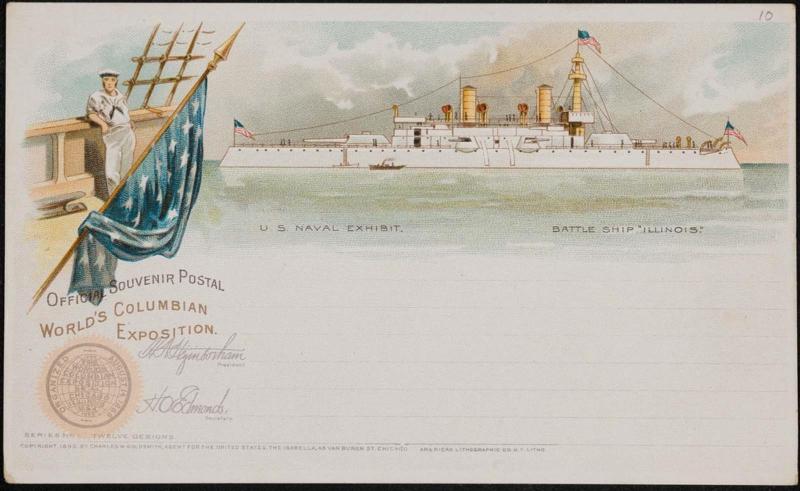 10
U. S. NAVAL EXHIBIT. BATTLE SHIP "ILLINOIS."
OFFICIAL SOUVENIR POSTAL
WORLD'S COLUMBIAN
EXPOSITION.
President
H. O. Edmonds,
Secretary.
ORGANIZED
WORLD'S
COLUMBIAN
EXPOSITION
CHICAGO
SERIES TWELVE DESIGNS
COPYRIGHT, BY CHARLES W. GOLDSMITH, AGENT FOR THE UNITED STATES, THE ISABELLA, 48 VAN BUREN ST. CHICAGO. AMERICAN LITHOGRAPHIC CO. N.Y. LITHO.